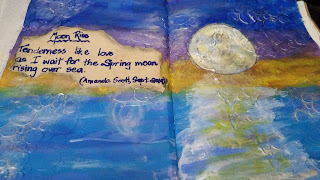 Moon Rise
Tenderness like love
as I wait for the Spring moon
rising over sea.
(Amanda Scott, Sept.